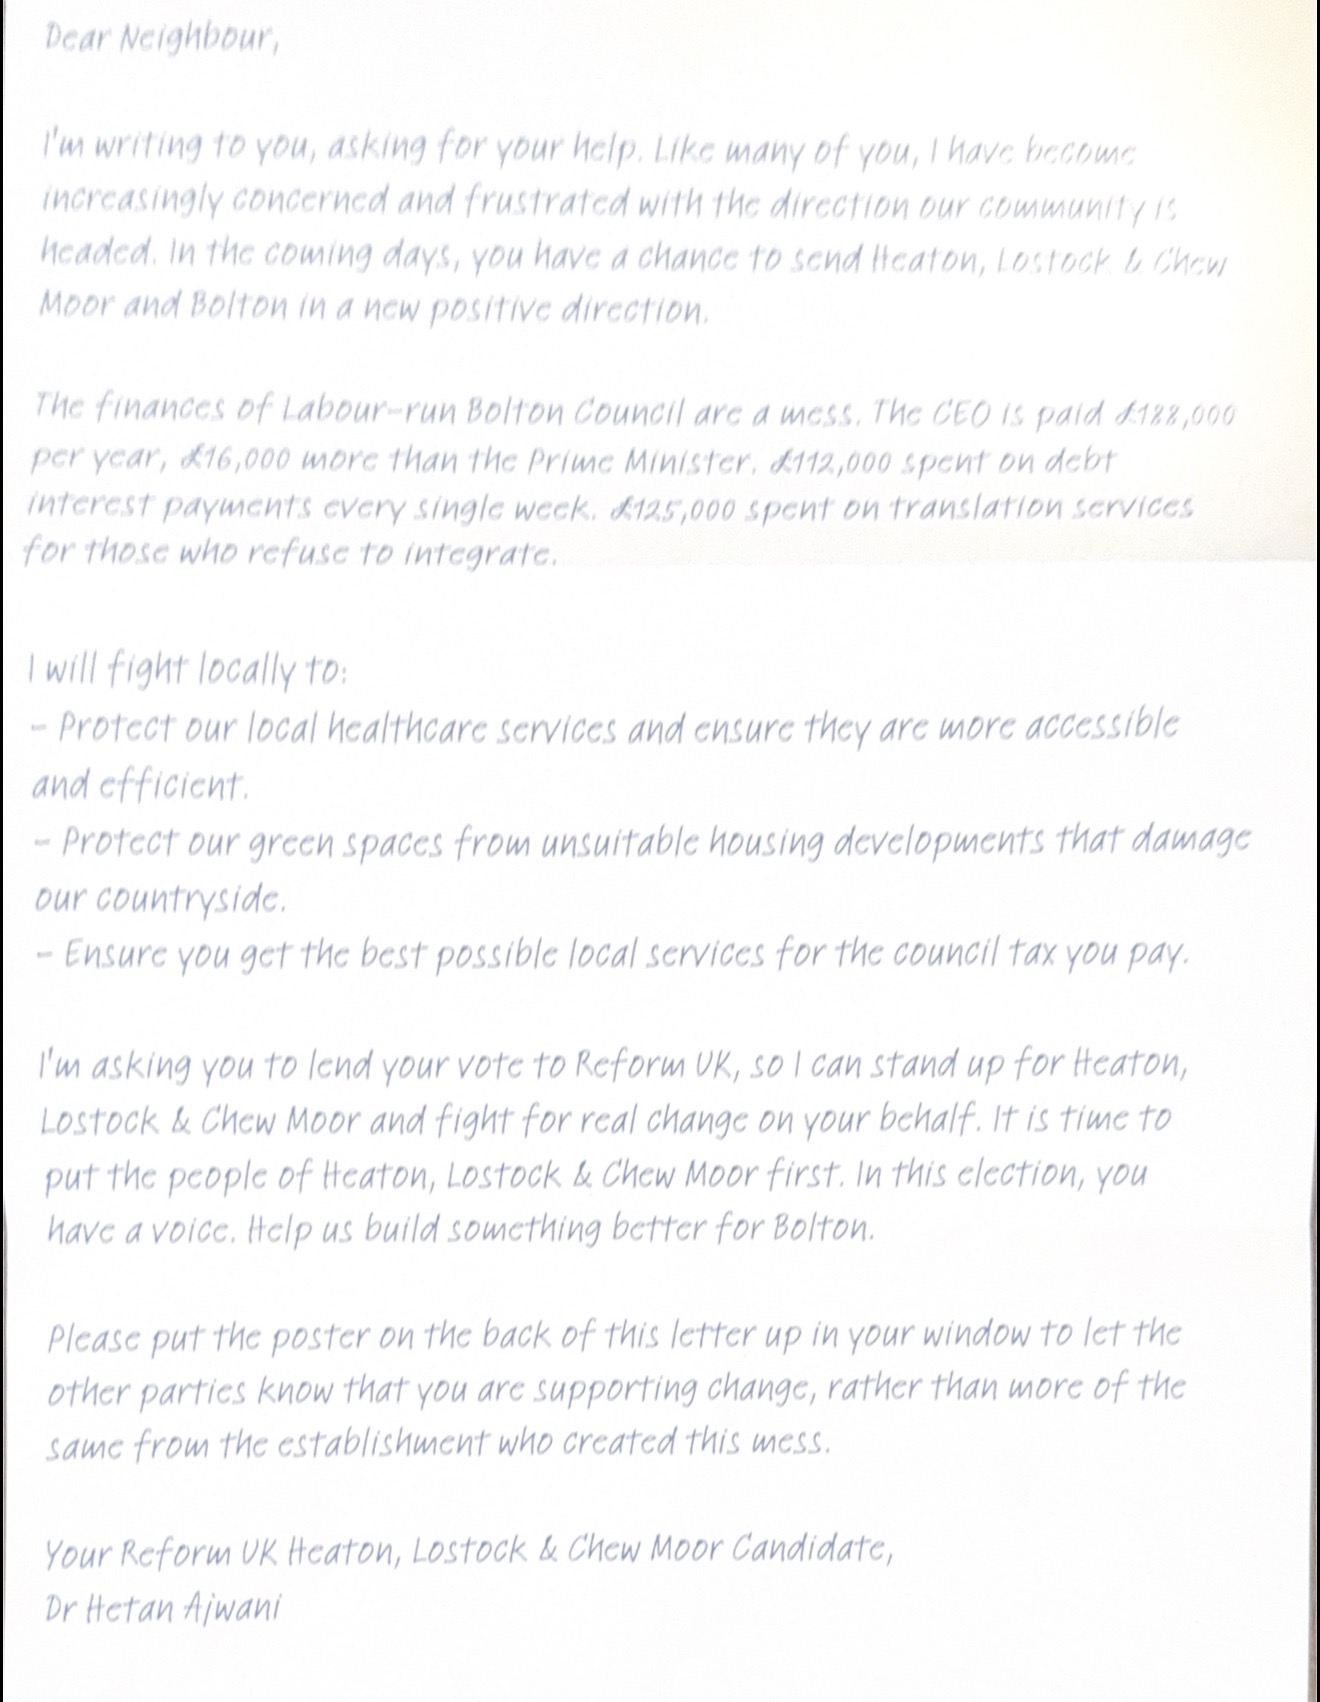 Dear Neighbour,
I'm writing to you, asking for your help. Like many of you, I have become
increasingly concerned and frustrated with the direction our community is
headed. In the coming days, you have a chance to send Heaton, Lostock & Chew
Moor and Bolton in a new positive direction.
The finances of Labour-run Bolton Council are a mess. The CEO is paid £188,000
per year, £16,000 more than the Prime Minister. £112,000 spent on debt
interest payments every single week. £125,000 spent on translation services
for those who refuse to integrate.
I will fight locally to:
- Protect our local healthcare services and ensure they are more accessible
and efficient.
- Protect our green spaces from unsuitable housing developments that damage
our countryside.
- Ensure you get the best possible local services for the council tax you pay.
I'm asking you to lend your vote to Reform UK, so I can stand up for Heaton,
Lostock & Chew Moor and fight for real change on your behalf. It is time to
put the people of Heaton, Lostock & Chew Moor first. In this election, you
have a voice. Help us build something better for Bolton.
Please put the poster on the back of this letter up in your window to let the
other parties know that you are supporting change, rather than more of the
same from the establishment who created this mess.
Your Reform UK Heaton, Lostock & Chew Moor Candidate,
Dr Hetan Ajwani